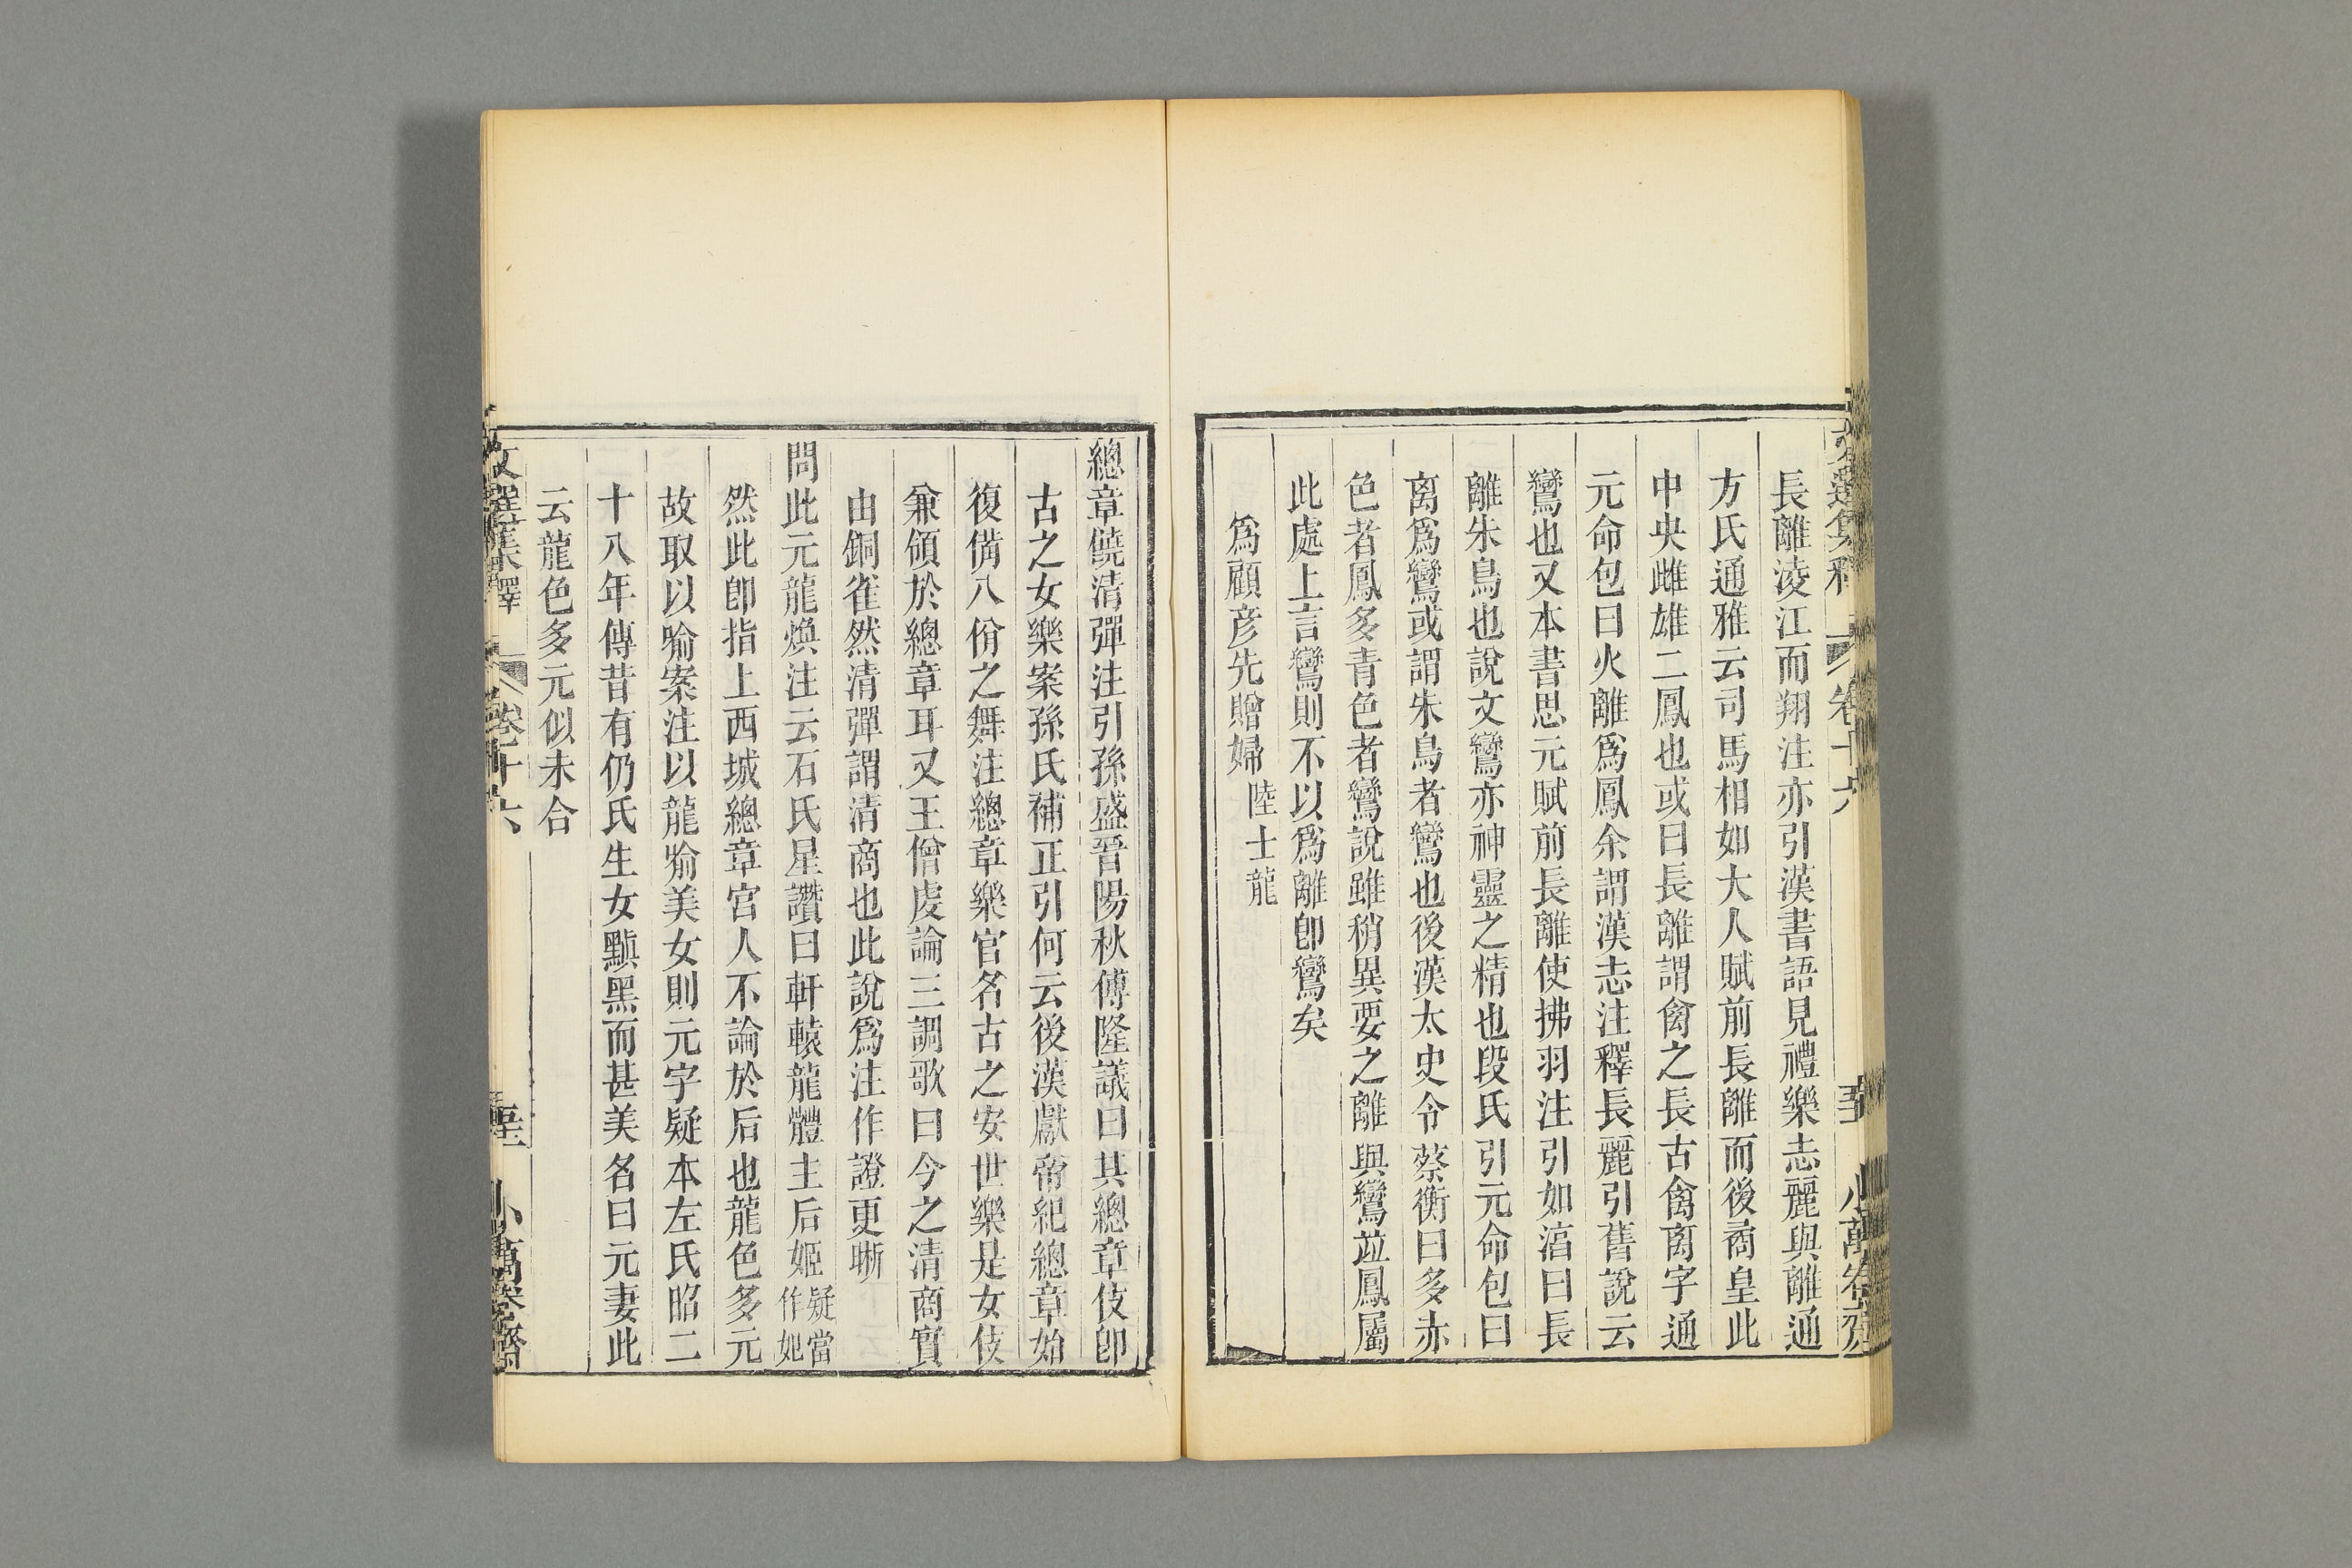 長離淩江而翔注亦引漢書語見禮樂志麗與離通
方氏通雅云司馬相如大人賦前長離而後矞皇此
中央雌雄二鳳也或曰長離謂禽之長古禽离字通
元命包曰火離爲鳳余謂漢志注釋長麗引舊說云
鸞也又本書思元賦前長離使拂羽注引如湻曰長
離朱鳥也說文鸞亦神靈之精也段氏引元命包曰
离爲鸞或謂朱鳥者鸞也後漢太史令蔡衡曰多赤
色者鳳多青色者鸞說雖稍異要之離與鸞竝鳳屬
此處上言鸞則不以爲離卽鸞矣
爲顧彦先贈婦 陸士龍
總章饒清彈注引孫盛晉陽秋傅隆議曰其總章伎卽
古之女樂案孫氏補正引何云後漢獻帝紀總章始
復備八佾之舞注總章樂官名古之安世樂是女伎
兼領於總章耳又王僧虔論三調歌曰今之清商實
由銅雀然清彈謂清商也此說爲注作證更晰
問此元龍煥注云石氏星讚曰軒轅龍體主后姬疑當作妃
然此卽指上西城總章宮人不論於后也龍色多元
故取以喻案注以龍喻美女則元字疑本左氏昭二
十八年傳昔有仍氏生女黰黑而甚美名曰元妻此
云龍色多元似未合
文選集釋 卷十六 小萬卷齋